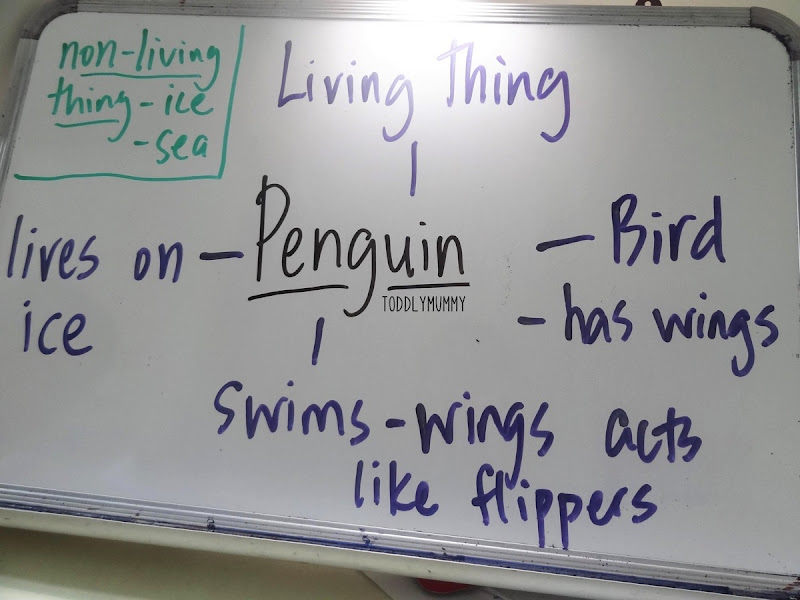 non-living
thing - ice
- sea
Living Thing
lives on - Penguin - Bird
TODDLYMUMMY
ice
- has wings
swims - wings acts
like flippers